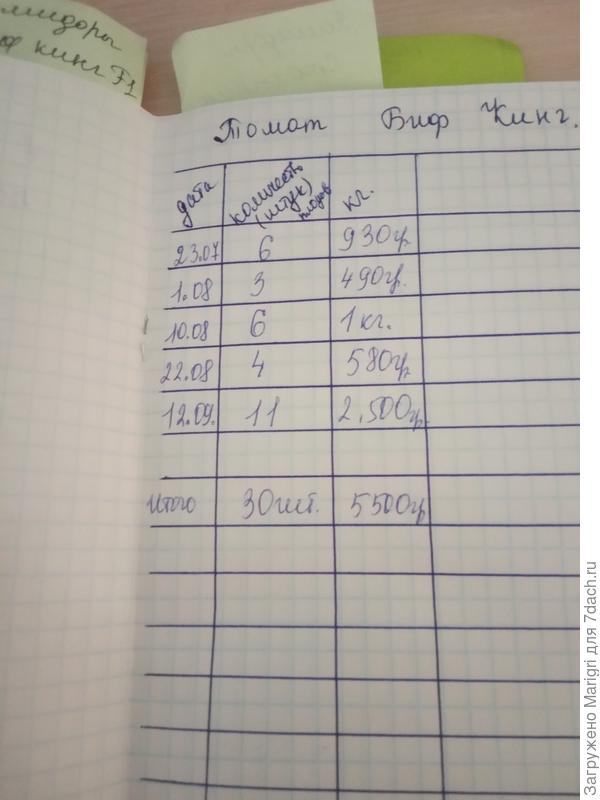 мидоры
ф кинг F1
Томат Биф Кинг.
дата количеств (штук) плодов кг.
23.07 6 930гр.
1.08 3 490гр.
10.08 6 1 кг.
22.08 4 580гр.
12.09. 11 2.500гр.
Итого 30шт. 5500гр
Загружено Marigri для 7dach.ru